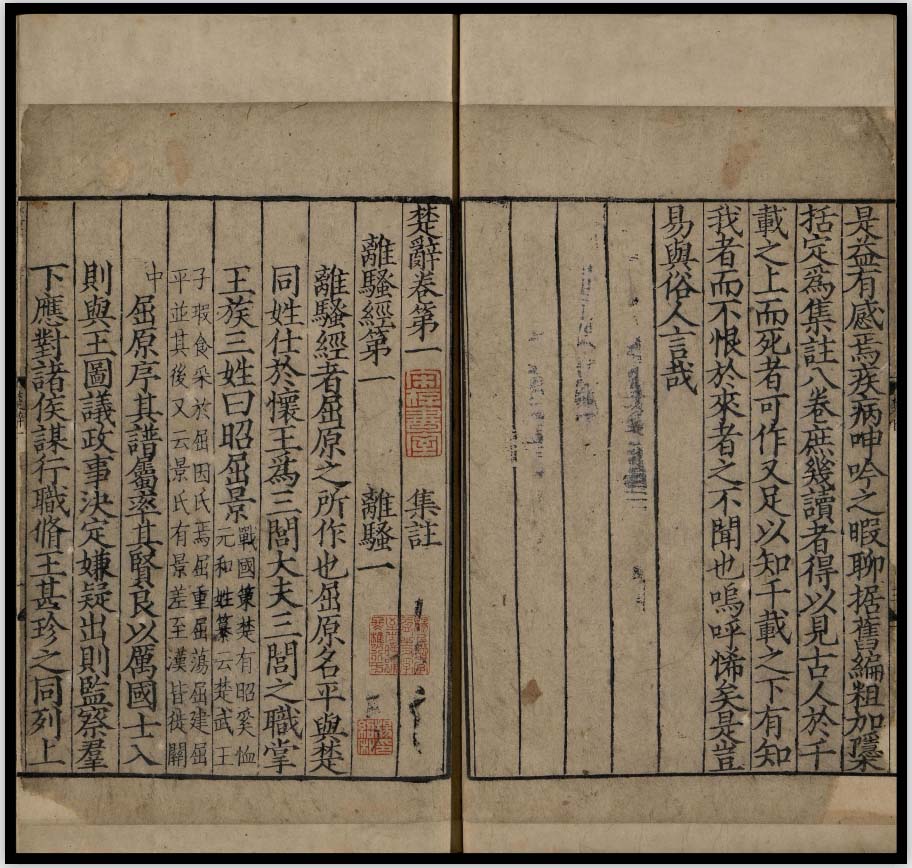 是益有感焉疾病呻吟之暇聊据舊編粗加隱栝
括定爲集註八卷庶幾讀者得以見古人於千
載之上而死者可作又足以知千載之下有知
我者而不恨於來者之不聞也嗚呼悕矣是豈
易與俗人言哉
楚辭卷第一 集註
離騷經第一 離騷一
離騷經者屈原之所作也屈原名平與楚
同姓仕於懷王爲三閭大夫三閭之職掌
王族三姓曰昭屈景
戰國策楚有昭奚恤
元和姓纂云楚武王
子瑕食采於屈因氏焉屈重屈蕩屈建屈
平並其後又云景氏有景差至漢皆徙關
中
屈原序其譜屬率其賢良以厲國士入
則與王圖議政事決定嫌疑出則監察羣
下應對諸侯謀行職脩王甚珍之同列上